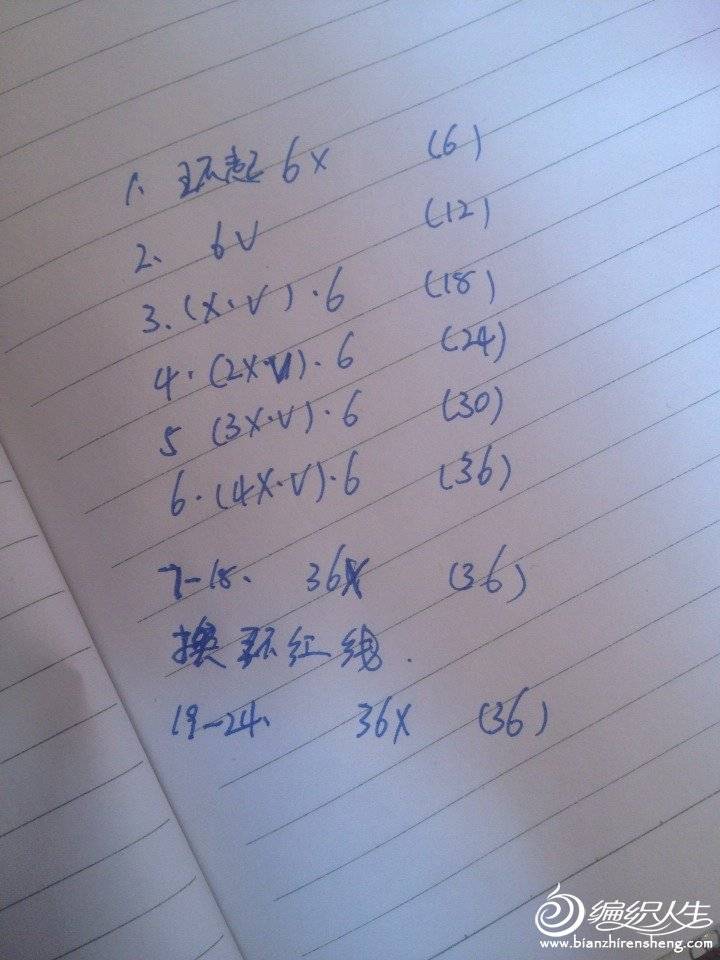 1. 环起 6X (6)
2. 6V (12)
3. (X·V)·6 (18)
4. (2X·V)·6 (24)
5 (3X·V)·6 (30)
6. (4X·V)·6 (36)
7-18. 36X (36)
换 红线.
19-24. 36X (36)
编织人生
www.bianzhirensheng.com